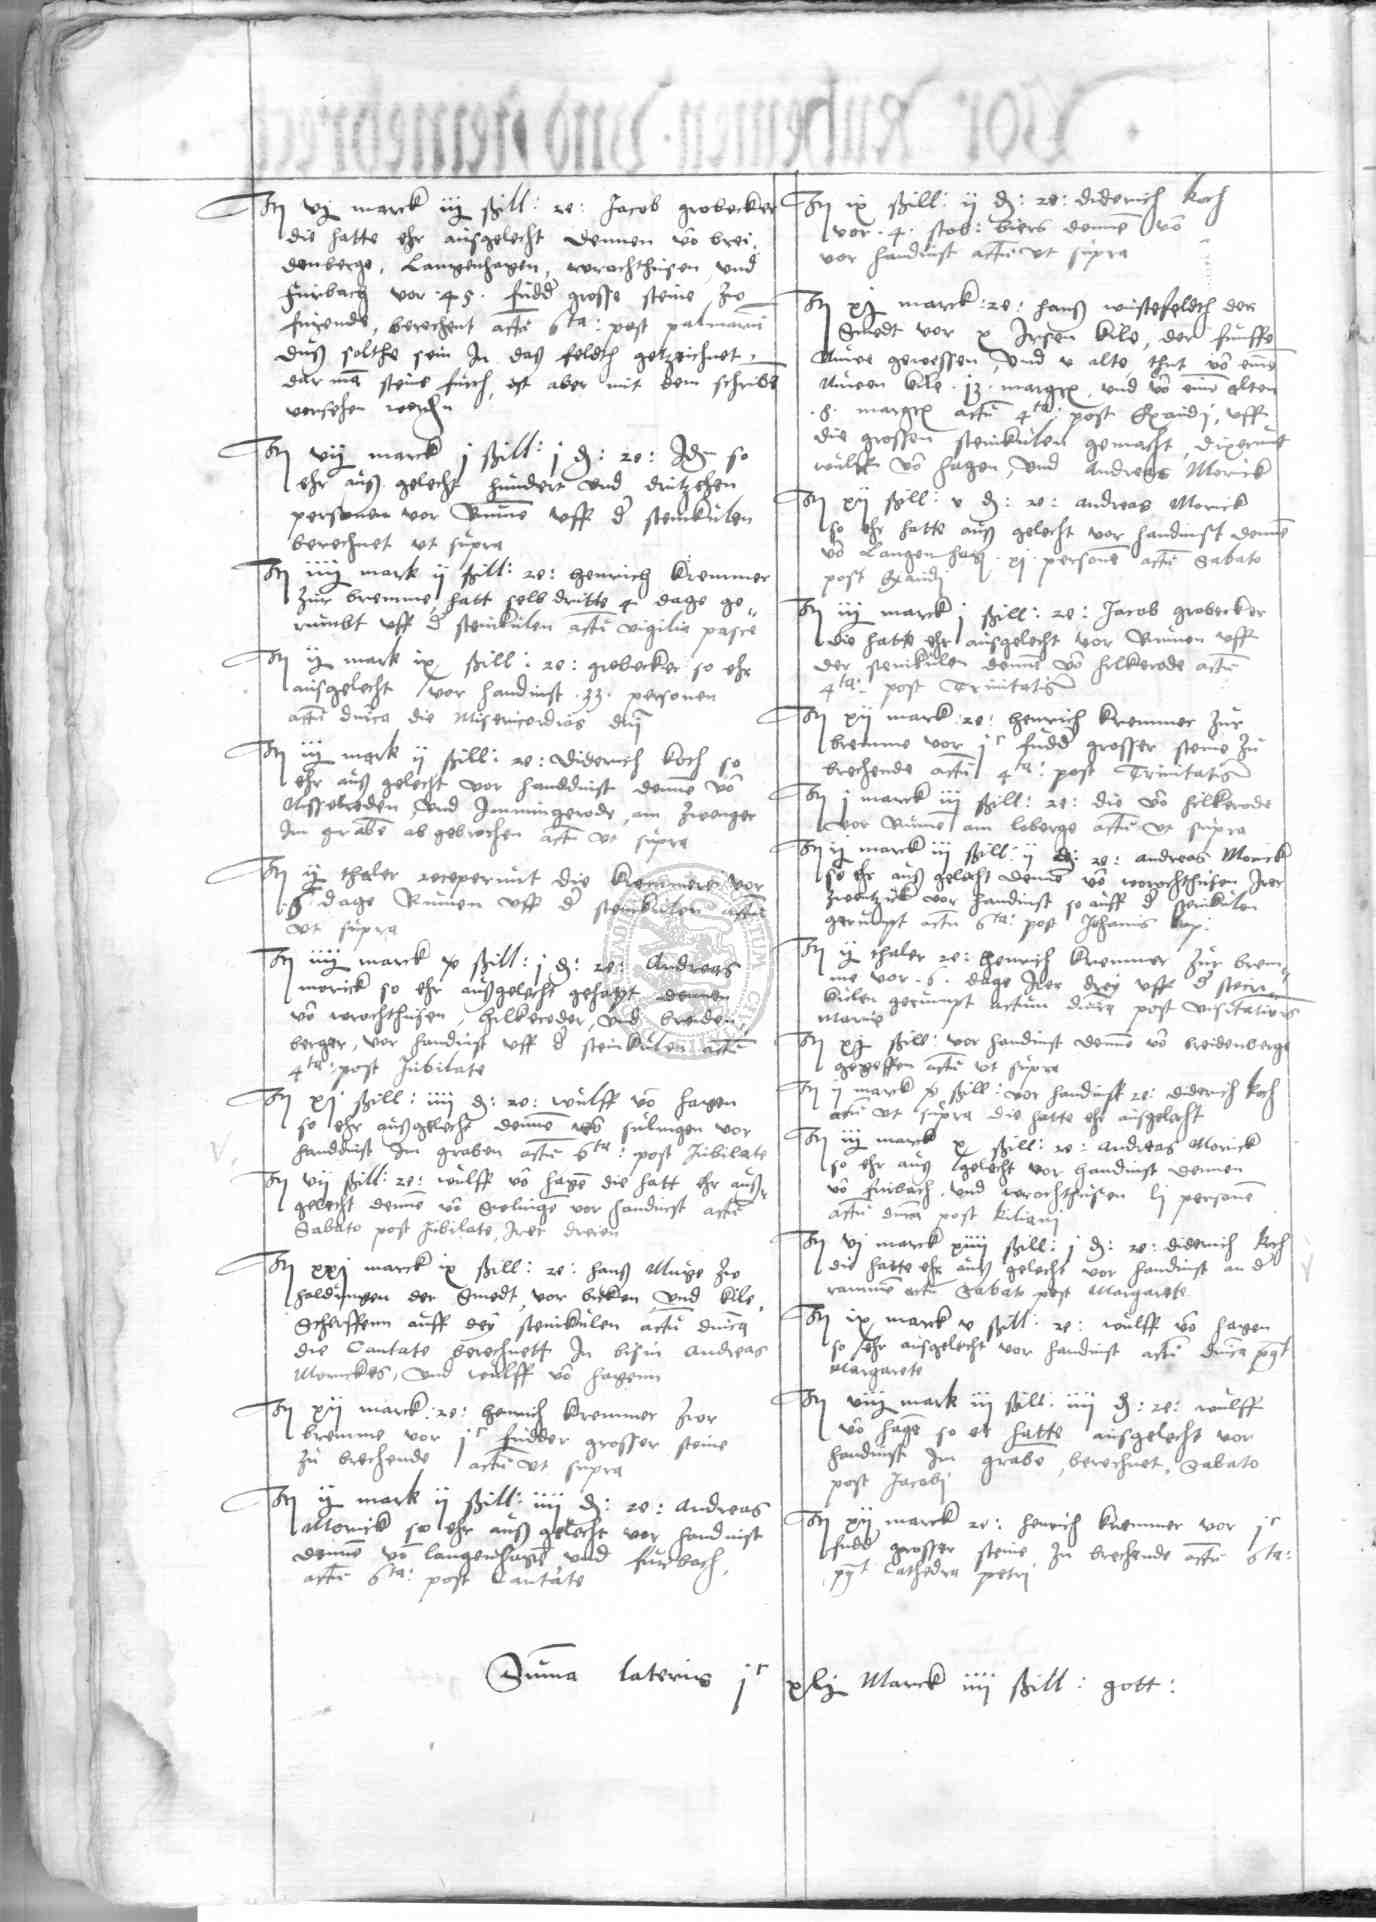 Itm vj marck iij ßill: re: Jacob grobecker
die hatte ehr ausgelecht dennen vō brei„
denberge, Langenhagen, wrochthusen und
furbach vor .45. fudd grosse steine zo
furende, berechent actū 6ta: post palmarū
duß solthe sein In daß feldth getzeichnet
dar mā steine furth, ist aber mit dem schribē
versehen
Itm vij marck j ßill: j d: re: Idem so
ehr auß gelecht hundert und drützehen
personen vor Rumē uff d steinkulen
berechnet ut supra
Itm iiij mark ij ßill: re: henrich kremmer
zur bremme, hatt selb dritte 4 dage ge„
rumbt uff d steinkulen actū vigilia pasce
Itm ij mark ix ßill: re: grobecker so ehr
ausgelecht vor handinst .33. personen
actū dnica die Misericordias dnj
Itm iij mark ij ßill: re: Diderich koch so
ehr auß gelecht vor handdinst dennē vō
und Immingerode, am zwenger
Im grabē ab gebrochen actū ut supra
Itm ij thaler receperunt die kremmers vor
.6. dage Rumen uff d steinkulen actū
ut supra
Itm iiij marck x ßill: j d: re: Andreas
morick so ehr ausgelecht gehapt dennen
vō wrochthusen, hilkeroder, und breiden„
berger, vor handinst uff d steinkulen actū
4ta: post Jubilate
Itm xj ßill: iiij d: re: wulff vō hagen
so ehr ausgelecht dennē vō sulingen vor
handdinst Im graben actū 6ta: post Jubilate
Itm vij ßill: re: wulff vō hagē die hatt ehr auß„
gelecht dennē vō Seelingē vor handinst actū
Sabato post Jubilate, Irer dreien
Itm xxj marck ix ßill: re: hanß Muge zo
haldungen der Smedt, vor bicken und kile,
Scherffenn auff dey steinkulen actū dnica
die Cantate berechnett In bisin Andreas
Morickes, und wulff vō hagenn
Itm xij marck: re: henrich kremmer zor
bremme vor jc fudder grosser steine
zu brechende actū ut supra
Itm ij mark ij ßill: iiij d: re: Andreas
Morick so ehr auß gelecht vor handinst
dennē vō langenhagē und furbach,
actū 6ta: post Cantate
Itm ix ßill: ij d: re: diderich koch
vor .4. stob: biers dennē vō
vor handinst actū ut supra
Itm xj marck: re: hanß wistefeldth der
Smedt vor x Irsen kile, der funffe
Nuwe gewessen, und v alte thut vō eynē
Nuwen kile .13. margr und vō einē alten
.8. margr actū 4ta: post Exaudj, uff
die grossen steinkulen gemacht, dixerunt
wulff vō hagen, und Andreas Morick
Itm xij ßill: v d: re: andreas Morick
so ehr hatte auß gelecht vor handinst dennē
vō Langenhagē .xj. personē actū Sabato
post Exaudj
Itm iij marck j ßill: re: Jacob grobecker
die hatte ehr ausgelecht vor Rumen uff
der steinkulen dennē vō hilkerode actū
4ta: post Trinitatis
Itm xij mark: re: henrich kremmer zur
bremme vor jc fudd grosser steine zu
brechende actū 4ta: post Trinitatis
Itm j marck iij ßill: re: die vō hilkerode
vor Rumē am loberge actū ut supra
Itm ij marck iij ßill: ij d: re: andreas Morick
so ehr auß gelecht dennē vō wrochthusen Irer
zwentzick vor handinst so auff d steinkulen
gerumpt actū 6ta: post Johanis bap:
Itm ij thaler re: henrich kremmer zur brem„
me vor .6. dage Irer drey uff d stein„
kulen gerumpt actum dnica post visitationis
Marie
Itm xj ßill: vor handinst dennē vō breidenberge
gegeffen actū ut supra
Itm ij marck x ßill: vor handinst re: diderich koch
actū ut supra die hatte ehr ausgelecht
Itm iij marck x ßill: re: andreas Morick
so ehr auß gelecht vor handinst dennen
vō furbach und wrochthusen lj personē
actū dnica post kilianj
Itm vj marck xiiij ßill: j d: re: diderich koch
die hatte ehr auß gelecht vor handinst an d
rammē actū Sabato post Margarete
Itm ix marck v ßill: re: wulff vō hagen
so ehr ausgelecht vor handinst actū dnica pꝰt
Margarete
Itm viij mark iij ßill: iiij d: re: wulff
vō hagē so er hatte ausgelecht vor
handinst Im grabē, berechnet, Sabato
post Jacobj
Itm xij marck re: henrich kremmer vor jc
fudd grosser steine, zu brechende actū 6ta:
pꝰt Cathedra petrj
Suma lateris jc xlij Marck iiij ßill: gott: